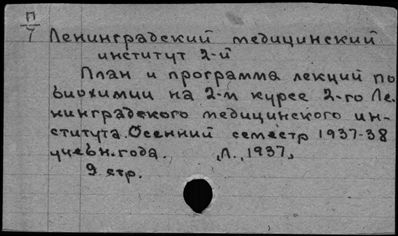 П/Т
Ленинградский медицинский
институт 2-й
План и программа лекций по
биохимии на 2-м курсе 2-го Ле-
нинградского медицинского ин-
ститута. Осенний семестр 1937-38
учебн. года. Л., 1937.
9 стр.